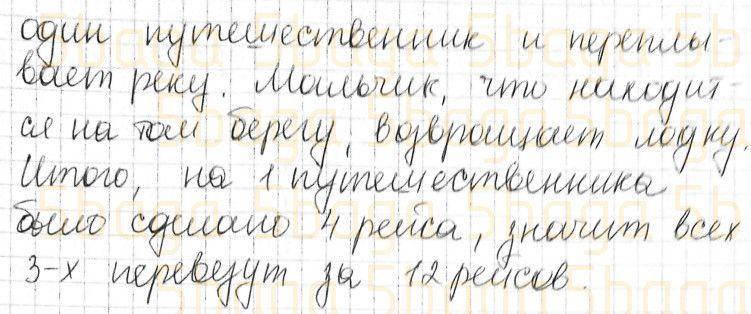 один путешественник и переплы-
вает реку. Мальчик, что находит-
ся на том берегу, возвращает лодку.
Итого, на 1 путешественника
было сделано 4 рейса, значит всех
3-х перевезут за 12 рейсов.